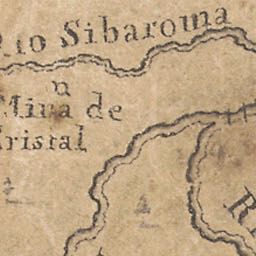 Rio Sibarouma
Mina de
Cristal